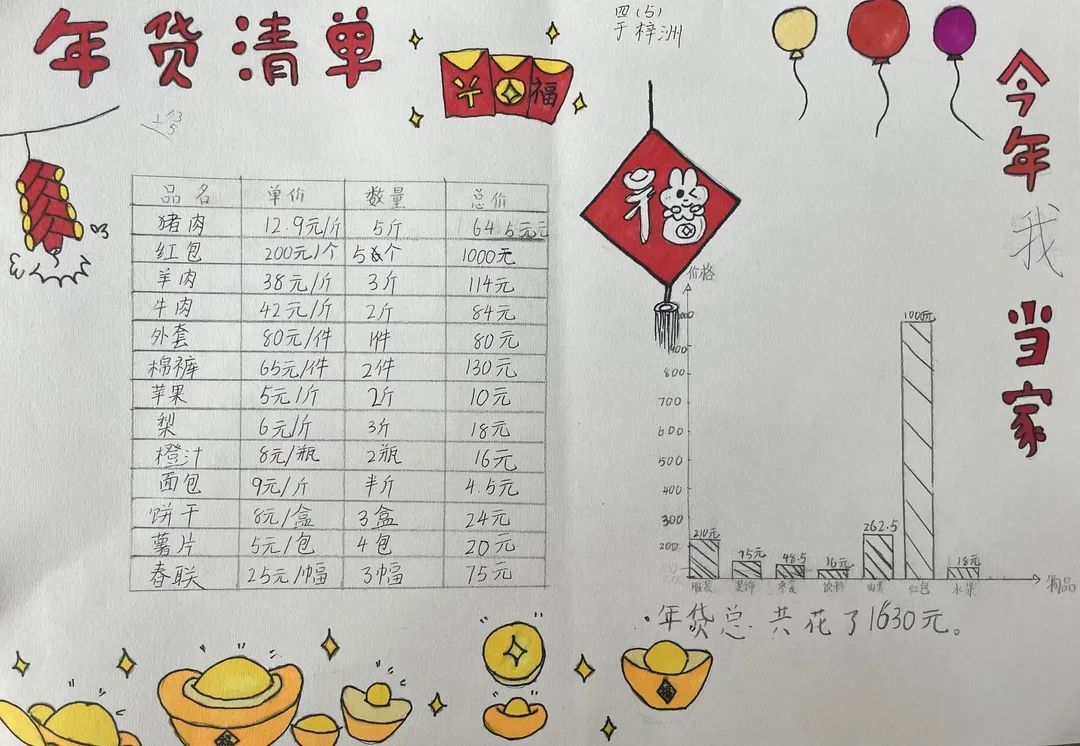 年货清单
福
四(5)
于梓洲
今年我当家
品名 单价 数量 总价
猪肉 12.9元/斤 5斤 64.5元
红包 200元/个 5个 1000元
羊肉 38元/斤 3斤 114元
牛肉 42元/斤 2斤 84元
外套 80元/件 1件 80元
棉裤 65元/件 2件 130元
苹果 5元/斤 2斤 10元
梨 6元/斤 3斤 18元
橙汁 8元/瓶 2瓶 16元
面包 9元/斤 半斤 4.5元
饼干 8元/盒 3盒 24元
薯片 5元/包 4包 20元
春联 25元/幅 3幅 75元
福
价格
800
700
600
500
400
300
200
210元
75元
48.5
16元
262.5
1000元
18元
服装 装饰 零食 饮料 肉类 红包 水果
物品
年货总共花了1630元。
福
福